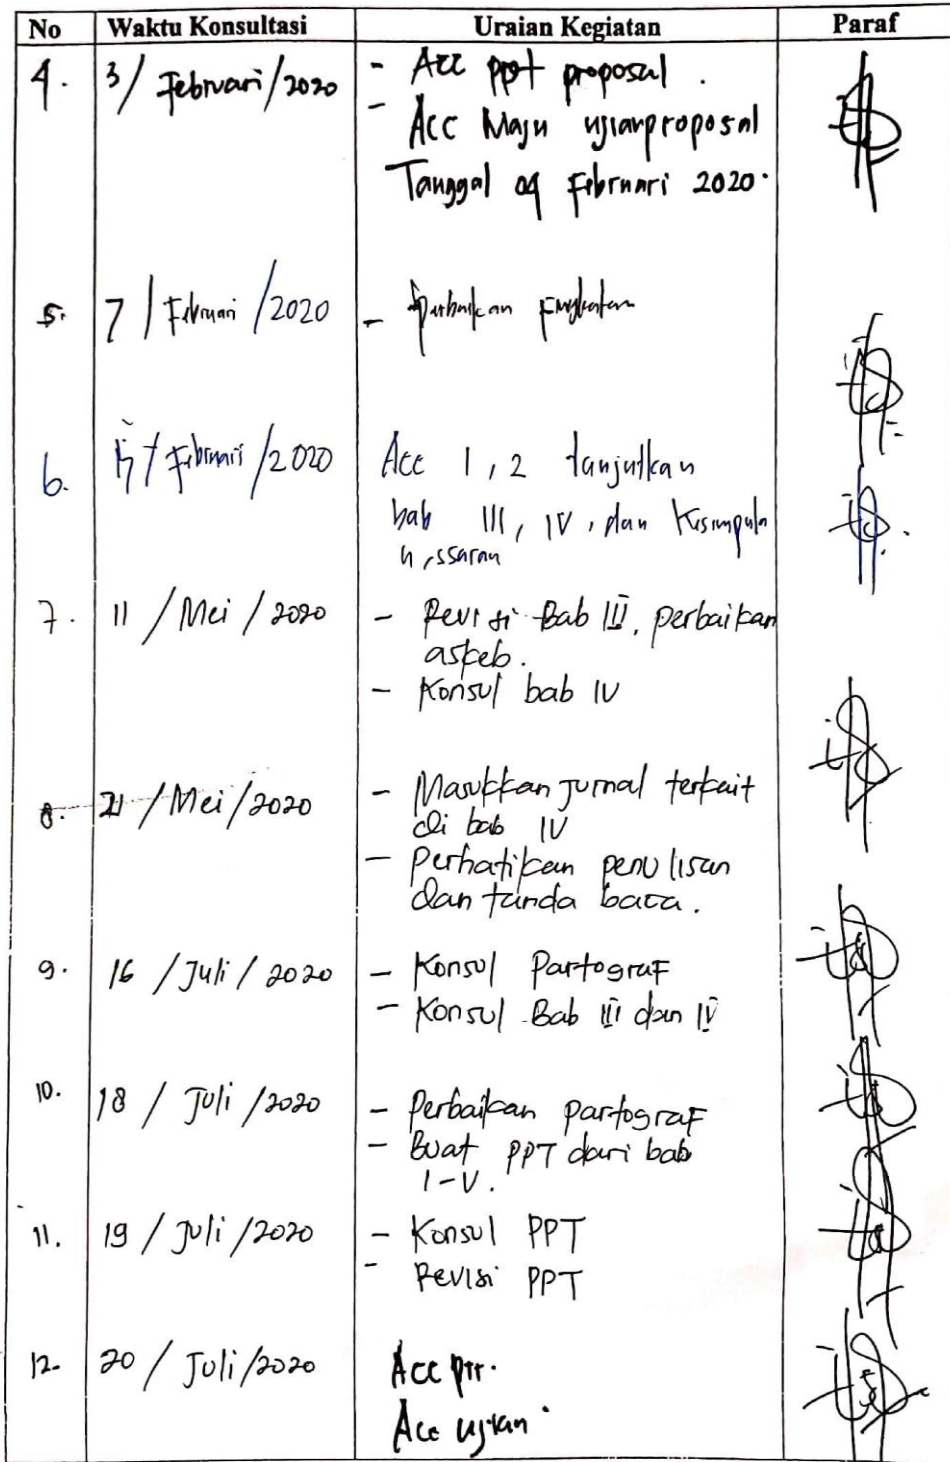 No Waktu Konsultasi Uraian Kegiatan Paraf
4. 3/ Februari/2020 - Acc ppt proposal.
- Acc Maju ujian proposal
Tanggal 04 Februari 2020.
5. 7 / Februari /2020 - Perbaikan
6. / Februari /2020 Acc 1, 2 lanjutkan
bab III, IV, dan Kesimpula
n, ssaran
7. 11 / Mei / 2020 - Revisi Bab III, perbaikan
askeb.
- Konsul bab IV
8. 21 / Mei / 2020 - Masukkan Jurnal terkait
di bab IV
- Perhatikan penulisan
dan tanda baca.
9. 16 / Juli / 2020 - Konsul Partograf
- Konsul Bab III dan IV
10. 18 / Juli /2020 - Perbaikan partograf
- Buat PPT dari bab
I-V.
11. 19 / Juli /2020 - Konsul PPT
- Revisi PPT
12. 20 / Juli/2020 Acc ppt.
Acc ujian.